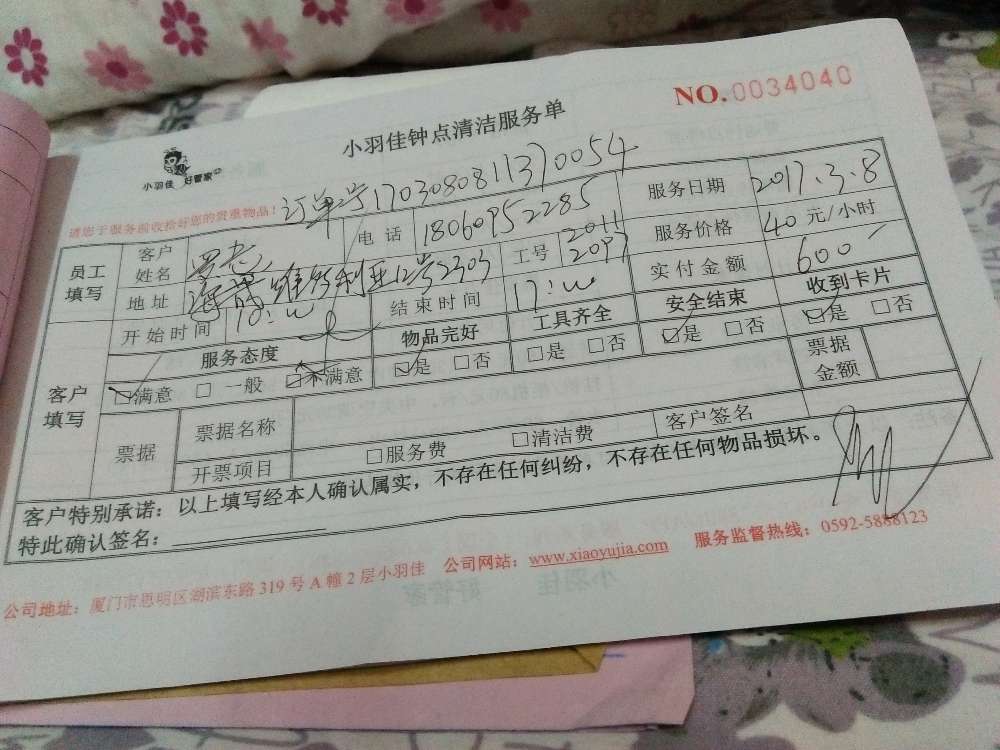 NO.0034040
小羽佳钟点清洁服务单
小羽佳 好管家
请您于服务前收检好您的贵重物品！ 订单号170308081137 0054
员工填写 客户姓名 罗志 电话 18060952285 服务日期 2017.3.8
地址 维多利亚12号2303 工号 2011 2097 服务价格 40元/小时
开始时间 10:00 结束时间 17:00 实付金额 600
客户填写 服务态度 物品完好 工具齐全 安全结束 收到卡片
□满意 □一般 □不满意 □是 □否 □是 □否 □是 □否 □是 □否
票据 票据名称 票据金额
开票项目 □服务费 □清洁费 客户签名
客户特别承诺：以上填写经本人确认属实，不存在任何纠纷，不存在任何物品损坏。
特此确认签名：
公司地址：厦门市思明区湖滨东路319号A幢2层小羽佳 公司网站：www.xiaoyujia.com 服务监督热线：0592-5888123